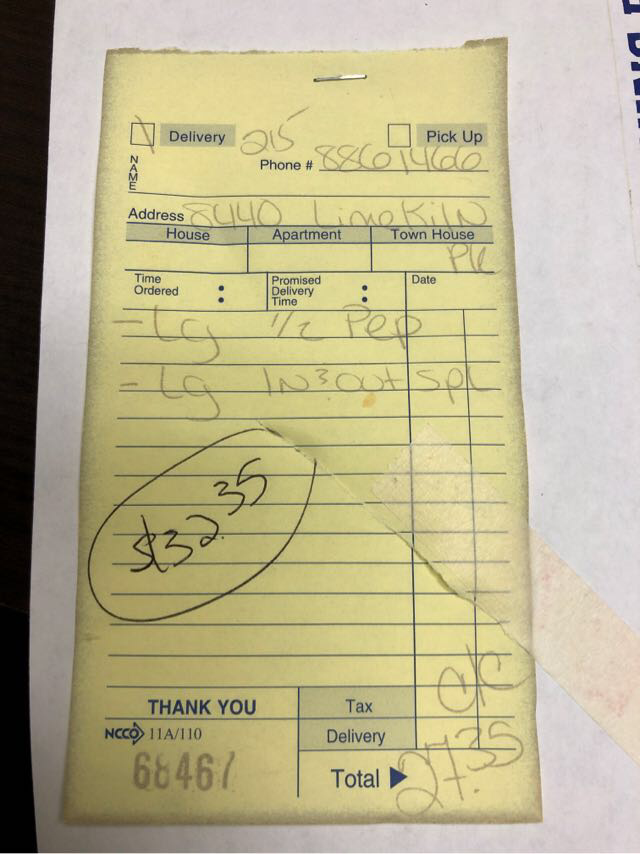 Delivery 215 Pick Up
NAME
Phone # 8861466
Address 8440 LimeKiln
House Apartment Town House
PK
Time Ordered : Promised Delivery Time : Date
- Lg 1/2 Pep
- Lg IN & Out Spl
$32.35
C/C
THANK YOU Tax
NCCO 11A/110 Delivery
68467 Total 27.35